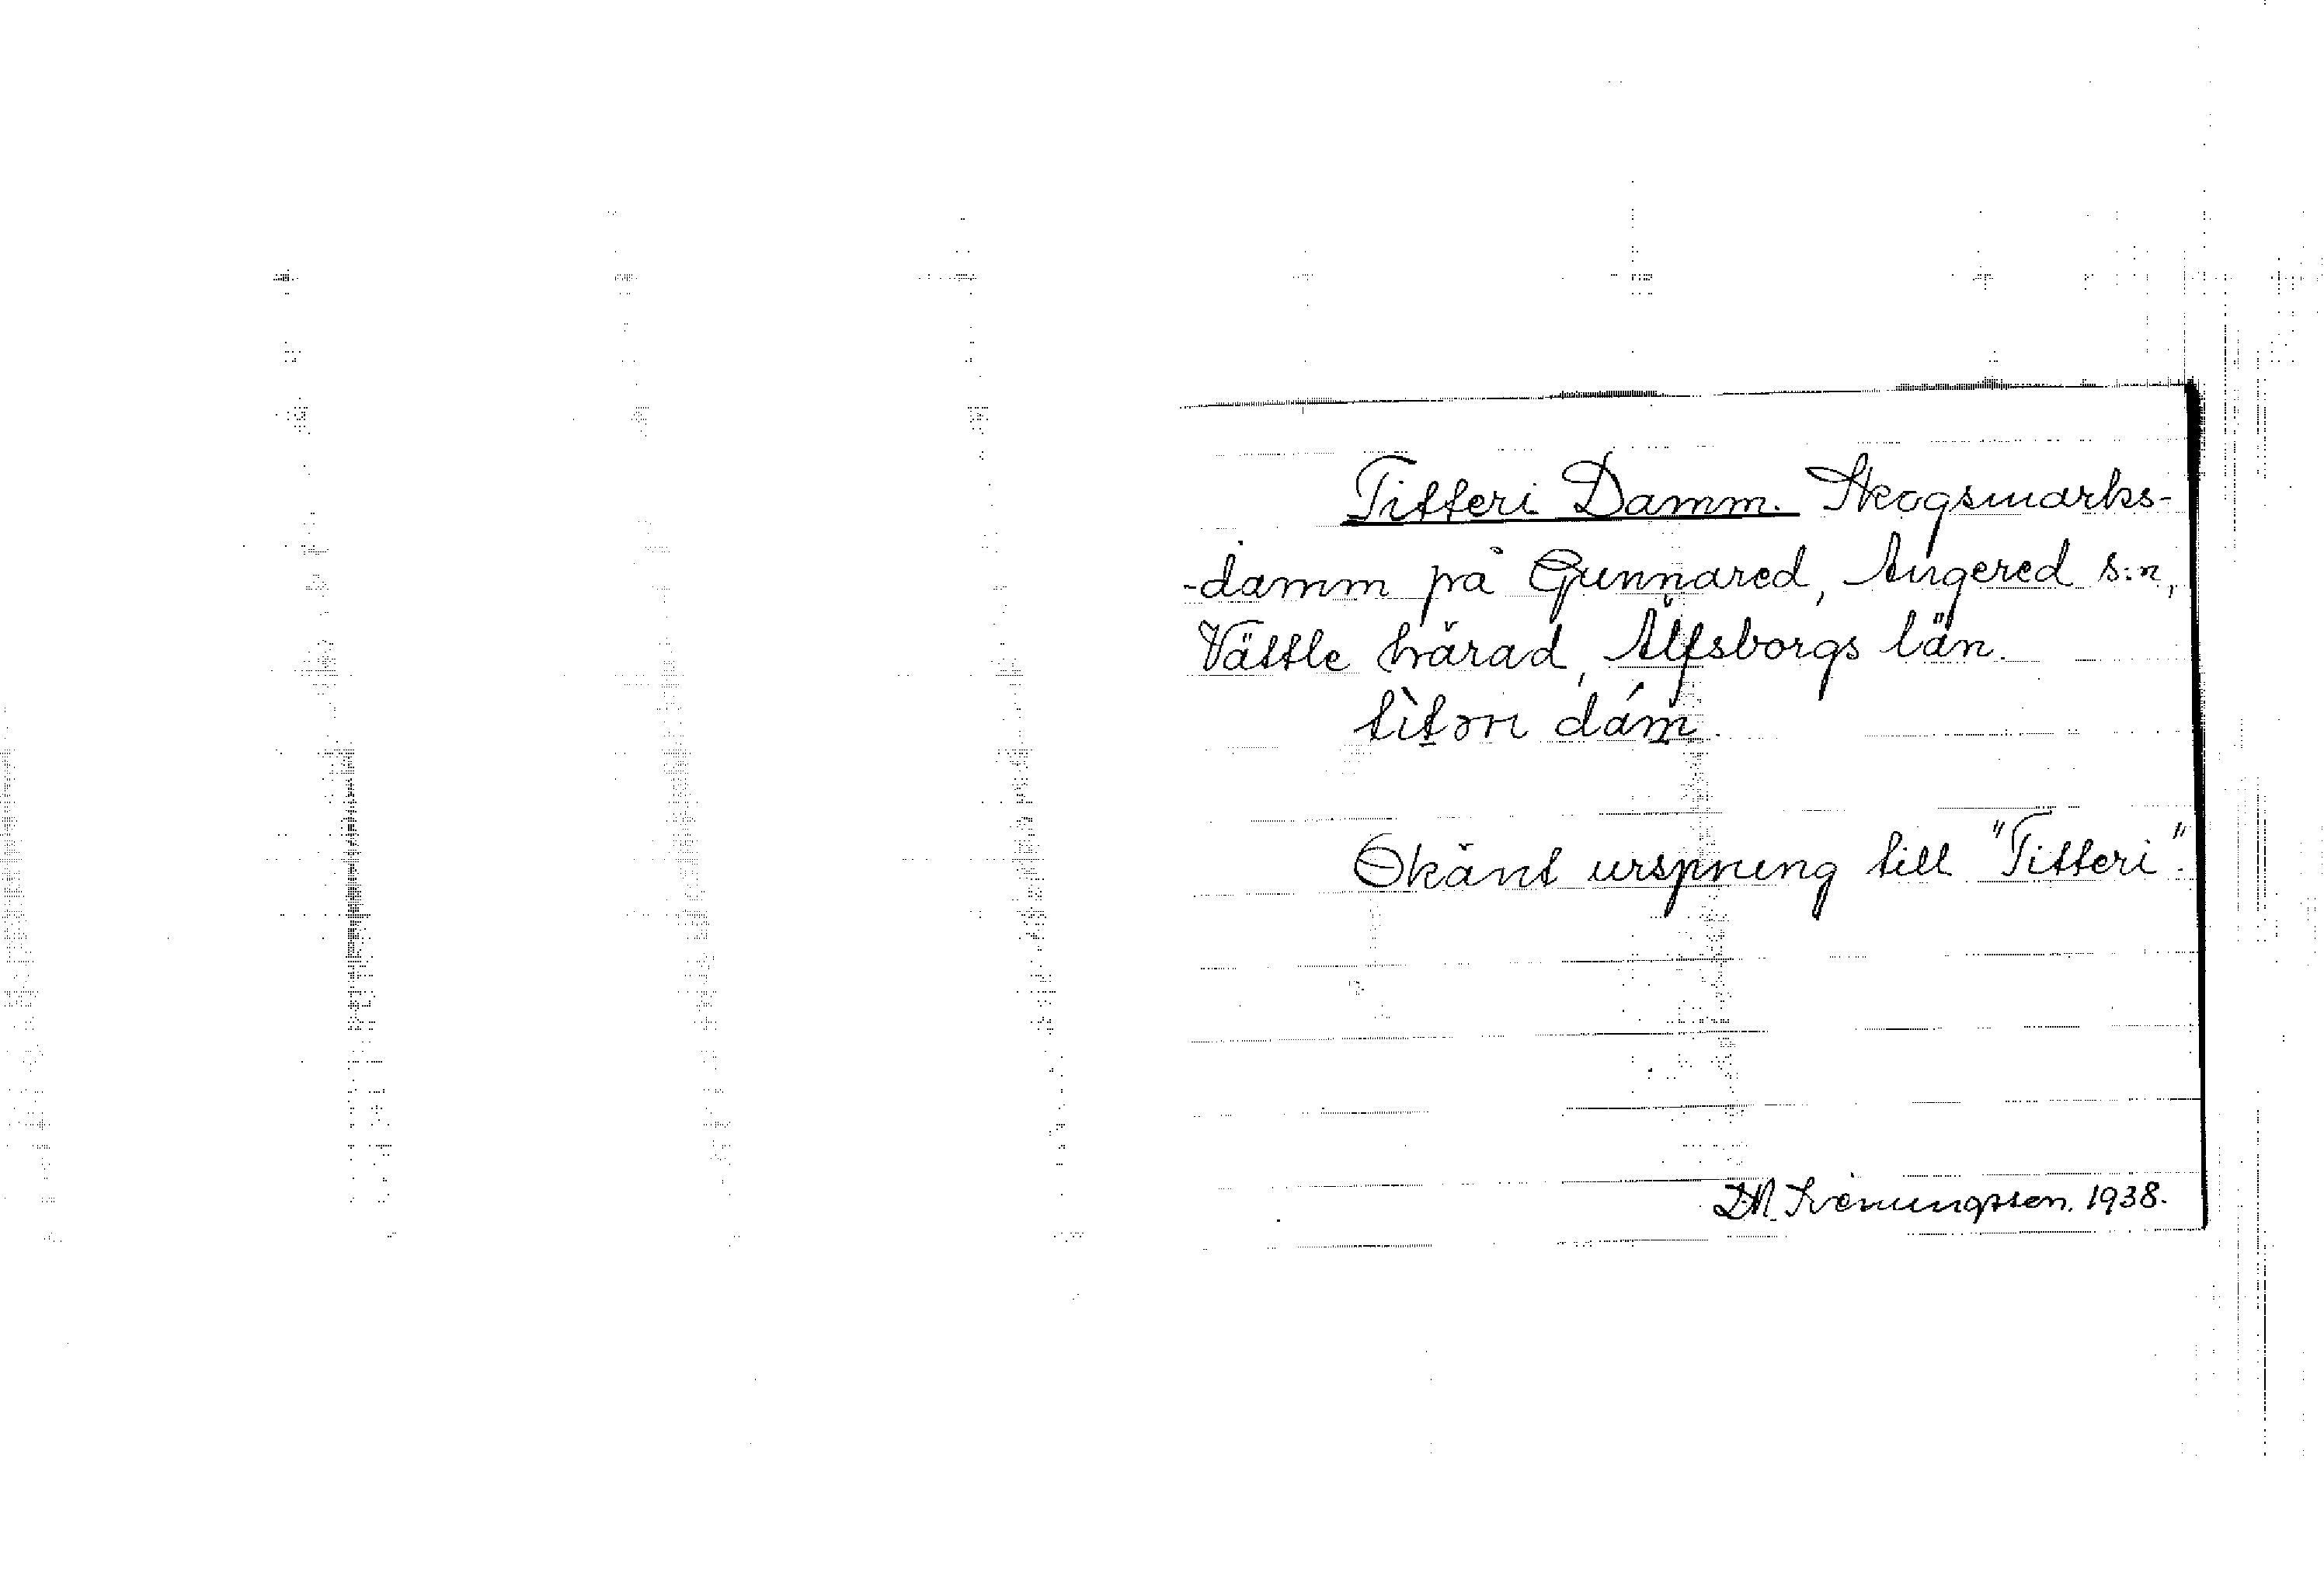 Titteri Damm. Skogsmarks-
-damm på Gunnared, Angered s:n,
Vättle härad, Älfsborgs län.
tìtəri dám.
Okänt ursprung till "Titteri".
1938.